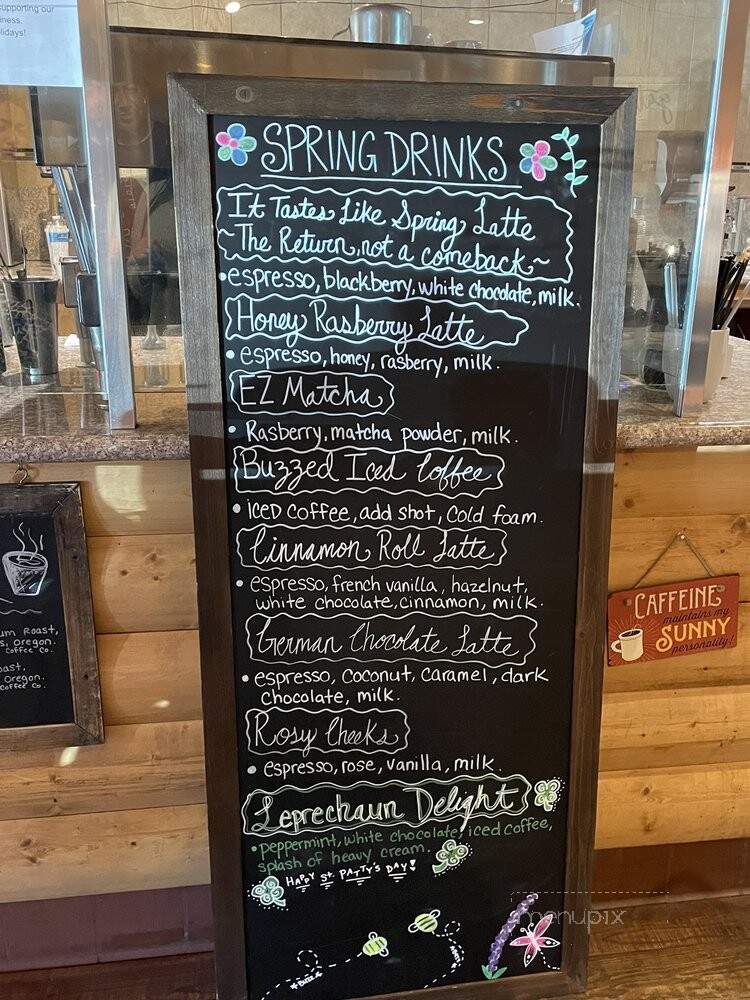 supporting our
iness.
lidays!
SPRING DRINKS
It Tastes Like Spring Latte
~The Return, not a comeback~
•espresso, blackberry, white chocolate, milk.
Honey Rasberry Latte
• espresso, honey, rasberry, milk.
EZ Matcha
• Rasberry, matcha powder, milk.
Buzzed Iced Coffee
• iced coffee, add shot, cold foam.
Cinnamon Roll Latte
• espresso, french vanilla, hazelnut,
white chocolate, cinnamon, milk.
German Chocolate Latte
• espresso, coconut, caramel, dark
chocolate, milk.
Rosy Cheeks
• espresso, rose, vanilla, milk.
Leprechaun Delight
•peppermint, white chocolate, iced coffee,
splash of heavy cream.
HAPPY St. PATTY'S DAY!
BUZZ
um Roast,
s, Oregon.
Coffee Co.
oast,
Oregon.
Coffee Co.
CAFFEINE
maintains my
SUNNY
personality!
menupix